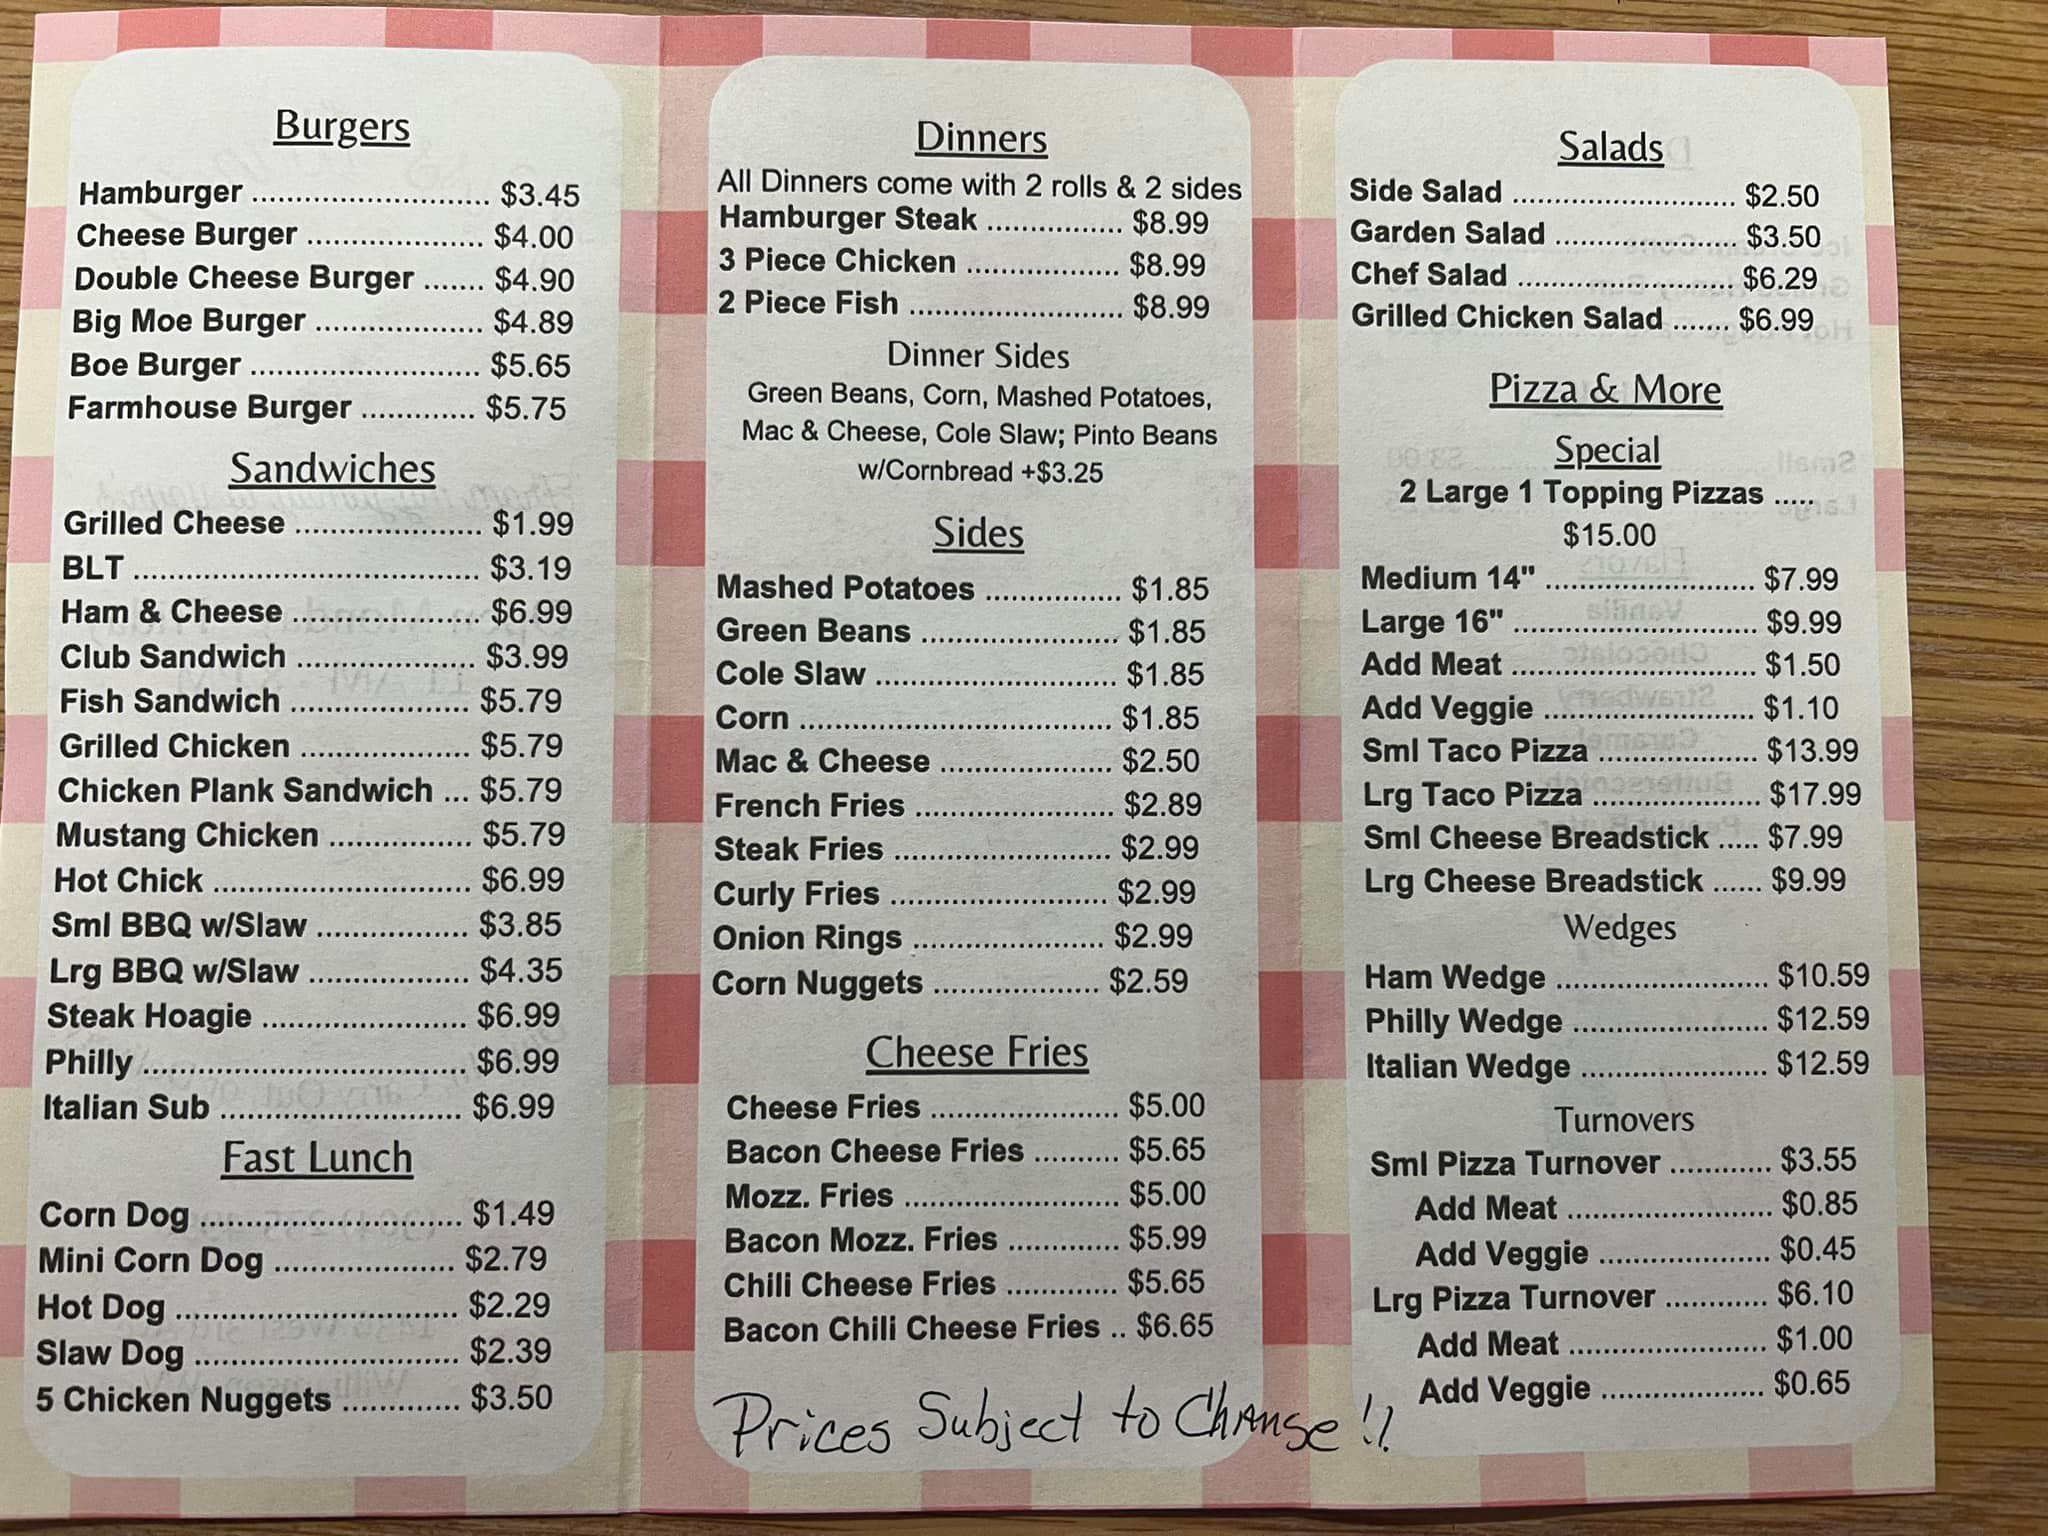 Burgers
Hamburger ........................... $3.45
Cheese Burger .................... $4.00
Double Cheese Burger ....... $4.90
Big Moe Burger ................... $4.89
Boe Burger .......................... $5.65
Farmhouse Burger ............. $5.75
Sandwiches
Grilled Cheese ..................... $1.99
BLT ....................................... $3.19
Ham & Cheese ..................... $6.99
Club Sandwich .................... $3.99
Fish Sandwich .................... $5.79
Grilled Chicken ................... $5.79
Chicken Plank Sandwich ... $5.79
Mustang Chicken ................ $5.79
Hot Chick ............................. $6.99
Sml BBQ w/Slaw ................. $3.85
Lrg BBQ w/Slaw .................. $4.35
Steak Hoagie ....................... $6.99
Philly ..................................... $6.99
Italian Sub ........................... $6.99
Fast Lunch
Corn Dog .............................. $1.49
Mini Corn Dog .................... $2.79
Hot Dog ................................ $2.29
Slaw Dog .............................. $2.39
5 Chicken Nuggets ............. $3.50
Dinners
All Dinners come with 2 rolls & 2 sides
Hamburger Steak ................ $8.99
3 Piece Chicken .................. $8.99
2 Piece Fish ........................ $8.99
Dinner Sides
Green Beans, Corn, Mashed Potatoes,
Mac & Cheese, Cole Slaw; Pinto Beans
w/Cornbread +$3.25
Sides
Mashed Potatoes ................ $1.85
Green Beans ....................... $1.85
Cole Slaw ............................ $1.85
Corn .................................... $1.85
Mac & Cheese .................... $2.50
French Fries ....................... $2.89
Steak Fries ......................... $2.99
Curly Fries ......................... $2.99
Onion Rings ...................... $2.99
Corn Nuggets ................... $2.59
Cheese Fries
Cheese Fries ...................... $5.00
Bacon Cheese Fries .......... $5.65
Mozz. Fries ......................... $5.00
Bacon Mozz. Fries ............. $5.99
Chili Cheese Fries ............. $5.65
Bacon Chili Cheese Fries .. $6.65
Prices Subject to Change!!
Salads
Side Salad .......................... $2.50
Garden Salad ..................... $3.50
Chef Salad ......................... $6.29
Grilled Chicken Salad ....... $6.99
Pizza & More
Special
2 Large 1 Topping Pizzas .....
$15.00
Medium 14" ........................ $7.99
Large 16" ............................ $9.99
Add Meat ............................ $1.50
Add Veggie ........................ $1.10
Sml Taco Pizza .................. $13.99
Lrg Taco Pizza ................... $17.99
Sml Cheese Breadstick ..... $7.99
Lrg Cheese Breadstick ...... $9.99
Wedges
Ham Wedge ........................ $10.59
Philly Wedge ...................... $12.59
Italian Wedge ..................... $12.59
Turnovers
Sml Pizza Turnover ............ $3.55
Add Meat ........................ $0.85
Add Veggie .................... $0.45
Lrg Pizza Turnover ............ $6.10
Add Meat ....................... $1.00
Add Veggie ................... $0.65